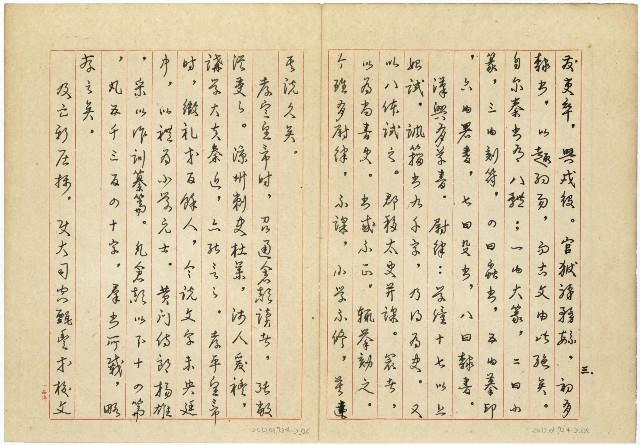 三.
發吏卒，興戍役。官獄職務緐。初有
隸書，以趣約易，而古文由此絕矣。
自爾秦書有八體：一曰大篆，二曰小
篆，三曰刻符，四曰蟲書，五曰摹印
，六曰署書，七曰殳書，八曰隸書。
漢興有草書。尉律：學僮十七以上
始試。諷籀書九千字，乃得為史。又
以八體試之。郡移太史并課。最者，
以為尚書史。書或不正，輒舉劾之。
今雖有尉律，不課，小學不修，莫達
其說久矣。
孝宣皇帝時，召通倉頡讀者，張敞
從受之。涼州刺史杜業，沛人爰禮，
講學大夫秦近，亦能言之。孝平皇帝
時，徵禮等百餘人，令說文字未央廷
中，以禮為小學元士。黃門侍郎揚雄
，采以作訓纂篇。凡倉頡以下十四篇
，凡五千三百四十字，羣書所載，略
存之矣。
及亡新居攝，使大司空甄豐等校文